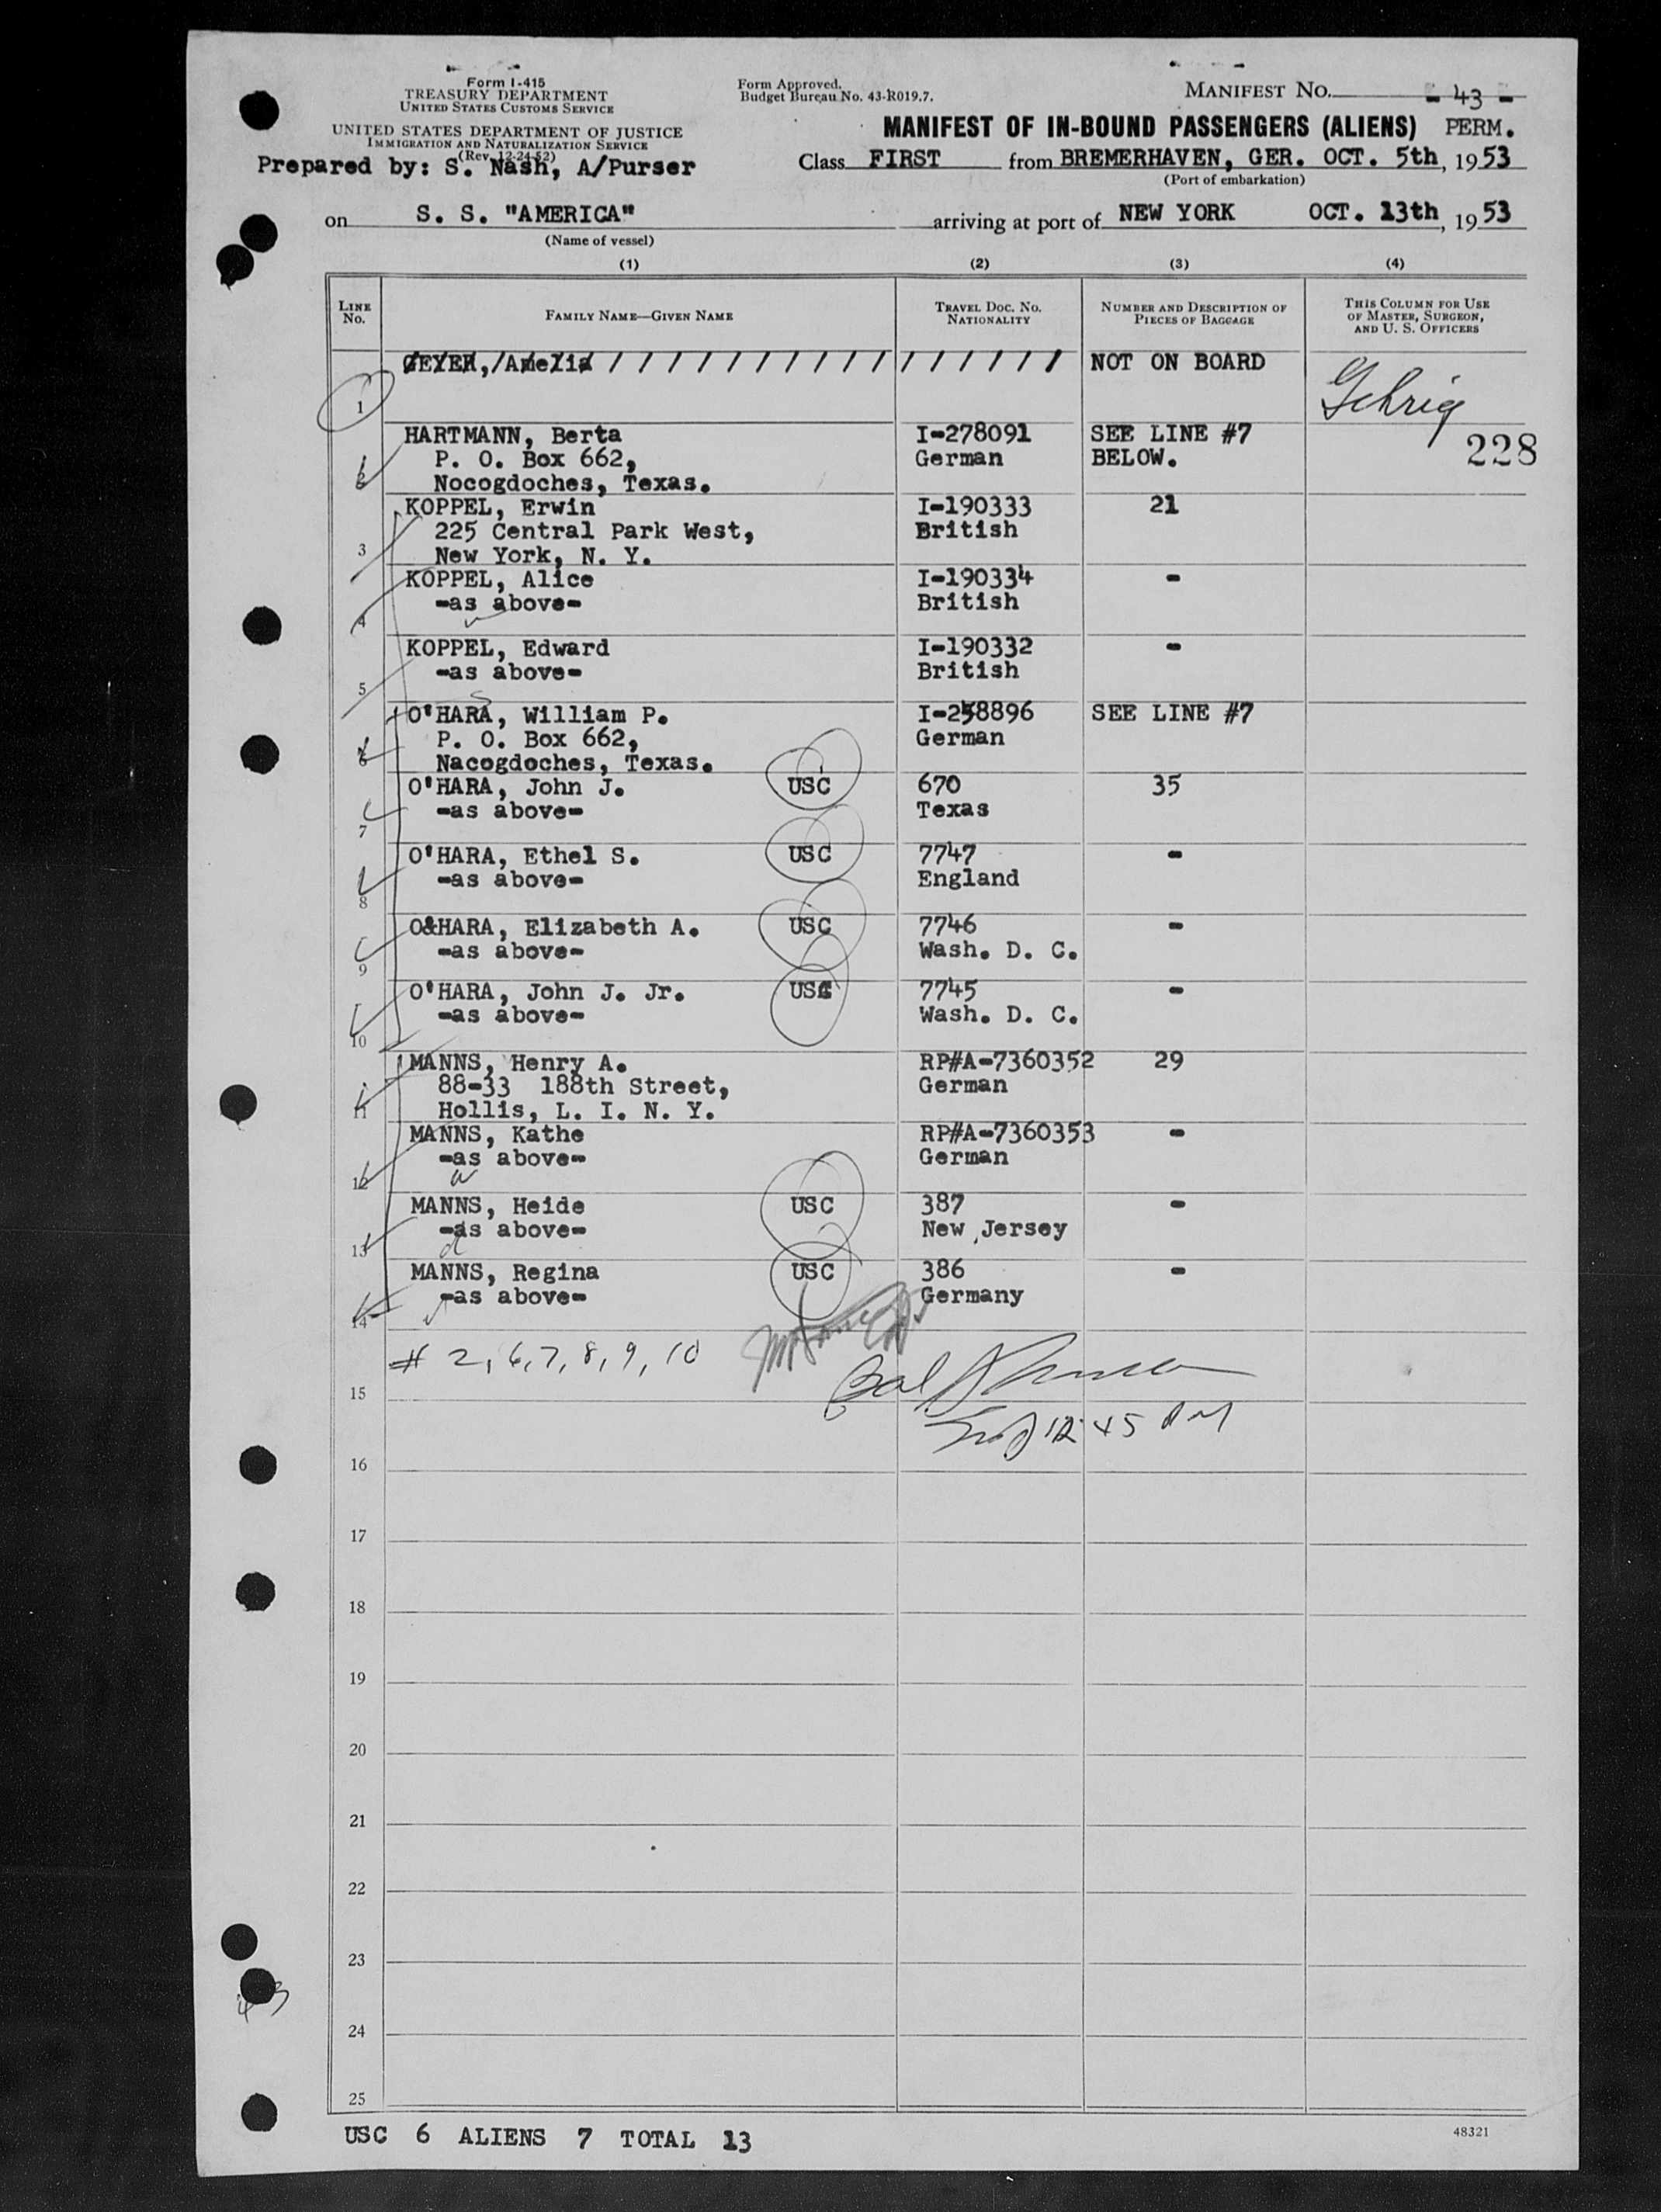 Form I-415
TREASURY DEPARTMENT
UNITED STATES CUSTOMS SERVICE
UNITED STATES DEPARTMENT OF JUSTICE
IMMIGRATION AND NATURALIZATION SERVICE
(Rev. 12-24-52)
Prepared by: S. Nash, A/Purser
Form Approved.
Budget Bureau No. 43-R019.7.
MANIFEST NO. - 43 -
MANIFEST OF IN-BOUND PASSENGERS (ALIENS) PERM.
Class FIRST from BREMERHAVEN, GER. OCT. 5th, 1953
(Port of embarkation)
on S. S. "AMERICA" arriving at port of NEW YORK OCT. 13th, 1953
(Name of vessel)
(1) (2) (3) (4)
LINE NO. FAMILY NAME—GIVEN NAME TRAVEL DOC. NO. NATIONALITY NUMBER AND DESCRIPTION OF PIECES OF BAGGAGE THIS COLUMN FOR USE OF MASTER, SURGEON, AND U. S. OFFICERS
GEYER, Amelia NOT ON BOARD
1 Gehrig
HARTMANN, Berta I-278091 SEE LINE #7 228
P. O. Box 662, German BELOW.
2 Nocogdoches, Texas.
KOPPEL, Erwin I-190333 21
225 Central Park West, British
3 New York, N. Y.
KOPPEL, Alice I-190334 -
-as above- British
4
KOPPEL, Edward I-190332 -
-as above- British
5
O'HARA, William P. I-258896 SEE LINE #7
P. O. Box 662, German
6 Nacogdoches, Texas.
O'HARA, John J. USC 670 35
-as above- Texas
7
O'HARA, Ethel S. USC 7747 -
-as above- England
8
O&HARA, Elizabeth A. USC 7746 -
-as above- Wash. D. C.
9
O'HARA, John J. Jr. USC 7745 -
-as above- Wash. D. C.
10
MANNS, Henry A. RP#A-7360352 29
88-33 188th Street, German
11 Hollis, L. I. N. Y.
MANNS, Kathe RP#A-7360353 -
-as above- German
12
MANNS, Heide USC 387 -
-as above- New Jersey
13
MANNS, Regina USC 386 -
-as above- Germany
14
# 2, 6, 7, 8, 9, 10
15
12 45 PM
16
17
18
19
20
21
22
23
43
24
25
USC 6 ALIENS 7 TOTAL 13
48321